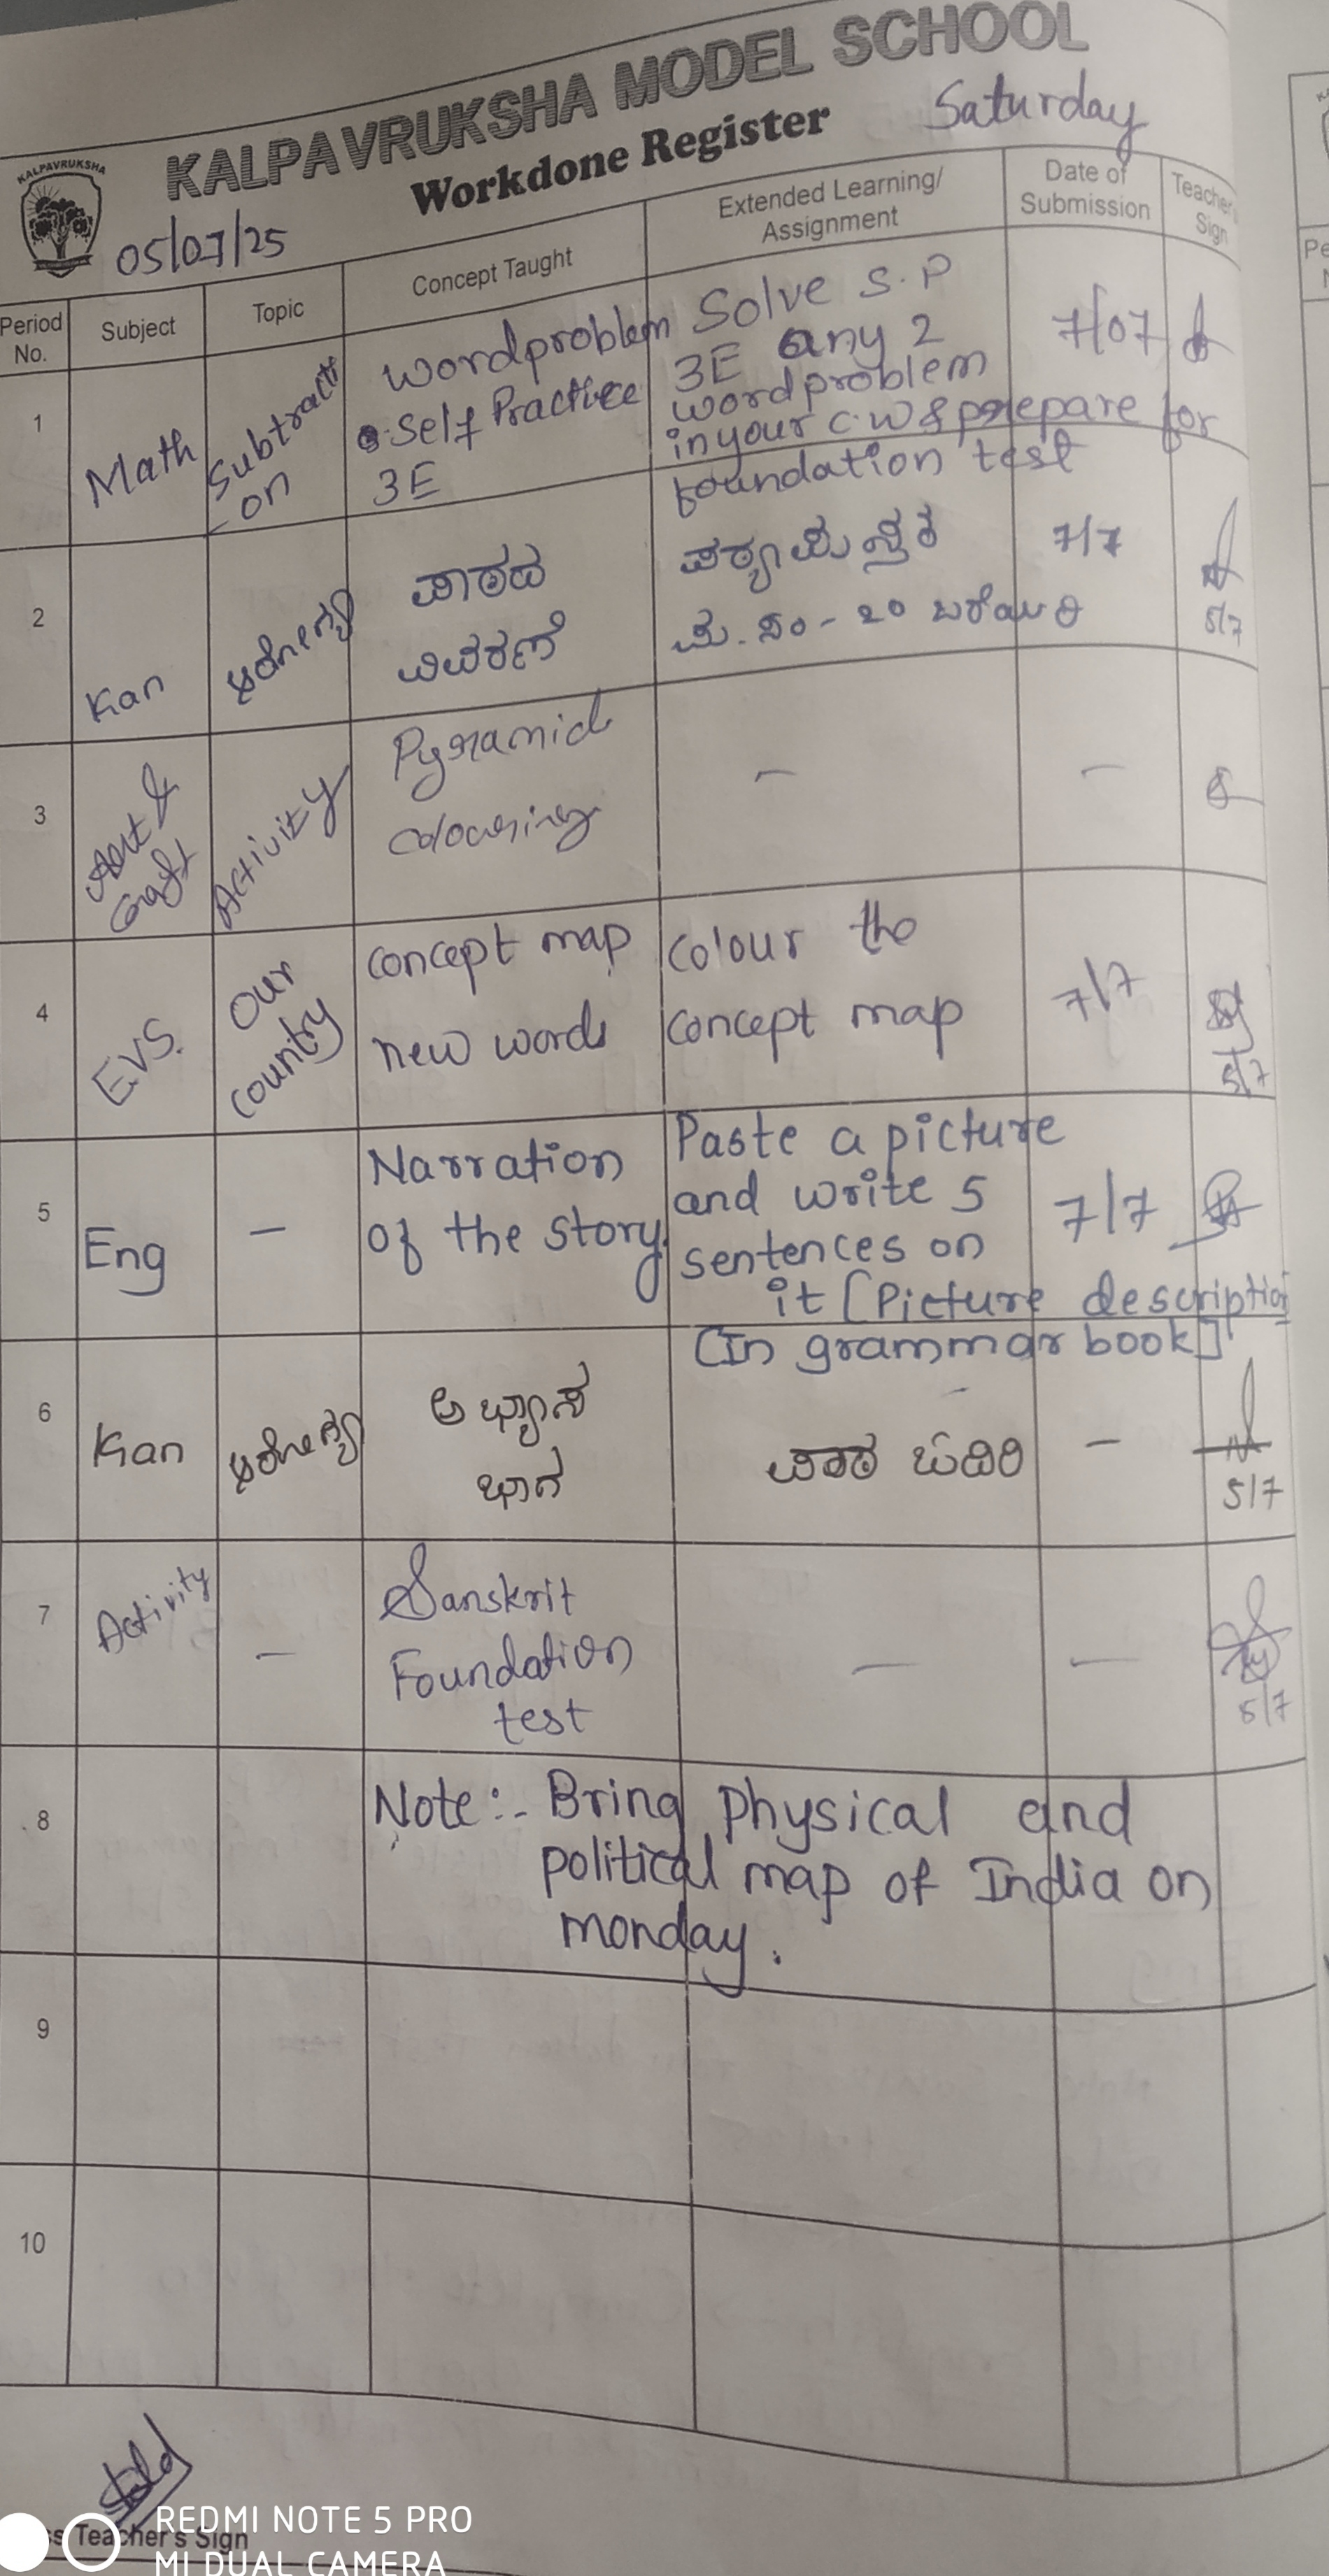 KALPAVRUKSHA MODEL SCHOOL
KALPAVRUKSHA
Workdone Register
Saturday
05/07/25
Period No.
Subject
Topic
Concept Taught
Extended Learning/
Assignment
Date of
Submission
Teacher's
Sign
1
Math
Subtracti
-on
wordproblem
Self Practice
3E
Solve S.P
3E any 2
wordproblem
in your C.W & prepare for
foundation test
7/07
2
Kan
ಆರೋಗ್ಯ
ಪಾಠದ
ವಿವರಣೆ
ಪಠ್ಯ ಪುಸ್ತಕ
ಪು.ಸಂ - 20 ಬರೆಯಿರಿ
7/7
5/7
3
Art &
Craft
Activity
Pyramid
colouring
—
—
4
EVS.
Our
country
concept map
new words
Colour the
concept map
7/7
5/7
5
Eng
—
Narration
of the story.
Paste a picture
and write 5
sentences on
it [Picture description
[In grammar book]
7/7
6
Kan
ಆರೋಗ್ಯ
ಅಭ್ಯಾಸ
ಭಾಗ
ಪಾಠ ಓದಿರಿ
—
5/7
7
Activity
—
Sanskrit
Foundation
test
—
—
5/7
8
Note:- Bring physical and
political map of India on
monday.
9
10
Teacher's Sign
REDMI NOTE 5 PRO
MI DUAL CAMERA